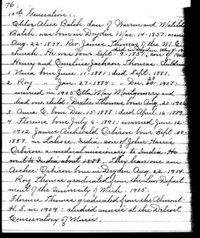 76.
10th Generation:
Chloe Alice Balch, dau. of Warren and Matilda
Balch, was born in Dryden Nov. 14-1857; married
Aug. 22-1878. Rev. James Thomas of the M. E.
church. He was born Sept. 9-1855; son of
Henry and Jackson Thomas. Children
1 born June 11-1881; died Sept. 1881.
2 Roy Jan. 27-1884. Dec. 20th 1907;
married in 1905 Etta May Montgomery and
had one child: Dexter Thomas born Aug. 22
3 Anna E. born Dec. 10-1885; died April 16-1889.
4 Florence born July 6-1891; married June 12-
1912 James Archibald Osborn born Sept. 20-
1887, in Lahore, India, son of John Harris
Osborn a medical missionary to India. He
went to India about 1888. They have one son
Archie Osborn born in Dryden Aug. 22, 1914.
Roy Thomas graduated from the Law Depart-
ment of the University of Mich. 1905.
Florence Thomas graduated from the Almont
H.S. in 1909; studied music at the Detroit
Conservatory of Music.